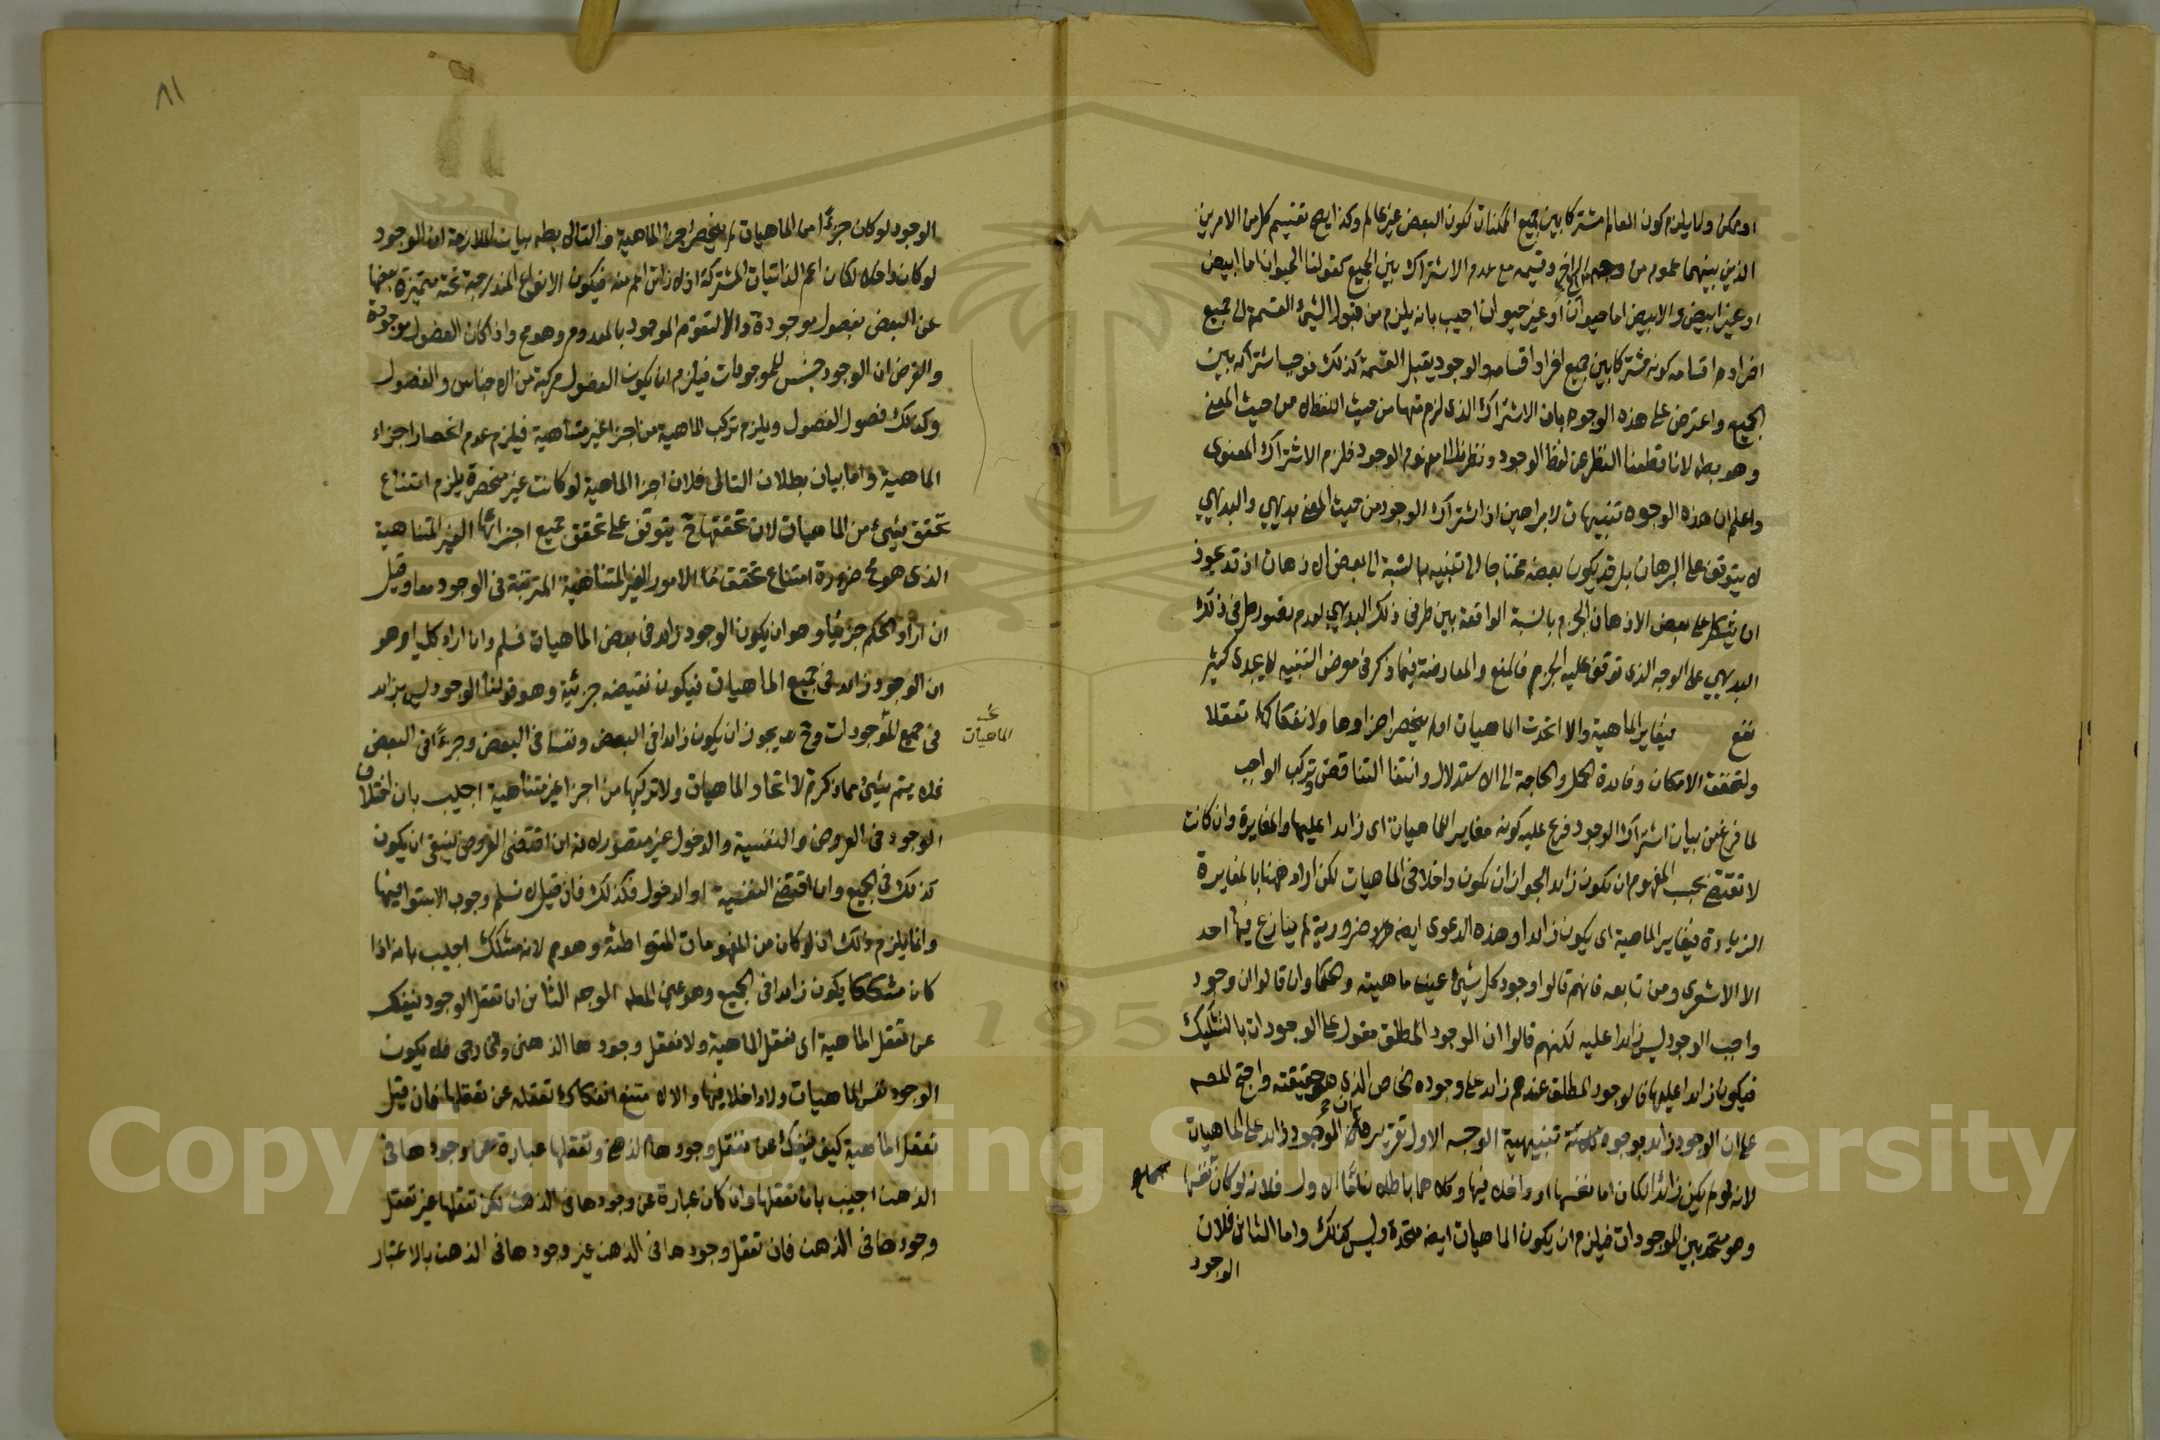 او ممكن ولا يلزم كون العالم مشتركا بين جميع الممكنات لكون البعض غير عالم وكذا يصح تقسيم كل من الامرين
الذين بينهما عموم من وجه الى الاخر وقسيمه مع عدم الاشتراك بين الجميع كقولنا الحيوان اما ابيض
او غير ابيض والابيض اما حيوان او غير حيوان اجيب بانه يلزم من قبول الشيء القسمة الى جميع
افراد اقسامه كونه مشتركا بين جميع افراد اقسامه والوجود يقبل القسمة كذلك فوجب اشتراكه بين
الجميع واعترض على هذه الوجوه بان الاشتراك الذى لزم منها من حيث اللفظ لا من حيث المعنى
وهو بط لانا قطعنا النظر عن لفظ الوجود ونظرنا الى مفهوم الوجود فلزم الاشتراك المعنوى
واعلم ان هذه الوجوه تنبيهات لا براهين اذ اشتراك الوجود من حيث المعنى بديهي والبديهي
لا يتوقف على البرهان بل قد يكون بعضه محتاجا الى تنبيه بالنسبة الى بعض الاذهان اذ قد يعوز
ان يشكل على بعض الاذهان الجزم بالنسبة الواقعة بين طرفى ذلك البديهي لعدم تصور طرفى ذلك
البديهي على الوجه الذى توقف عليه الجزم فالمنع والمعارضة فيما ذكر فى معرض التنبيه لا يجدى كثير
نفع فيغاير الماهية والا اتحدت الماهيات او لم ينحصر اجزاوها ولانفكاكهما تعقلا
ولتحقق الامكان وفائدة الحمل والحاجة الى الاستدلال وانتفا التناقض وتركب الواجب
لما فرغ من بيان اشتراك الوجود فرع عليه كونه مغايرا للماهيات اى زايدا عليها والمغايرة وان كانت
لا تقتضى بحسب المفهوم ان يكون زايدا لجواز ان يكون داخلا فى الماهيات لكن اراد ههنا بالمغايرة
الزيادة فيغاير الماهية اى يكون زايدا وهذه الدعوى ايضا ضرورية لم ينازع فيها احد
الا الاشعرى ومن تابعه فانهم قالوا وجود كل شيء عين ماهيته والحكما وان قالوا ان وجود
واجب الوجود ليس زايدا عليه لكنهم قالوا ان الوجود المطلق مقول على الوجودات بالتشكيك
فيكون زايدا عليها فالوجود المطلق عندهم زايد على وجوده الخاص الذى هو حقيقته واحتج المصـ
على ان الوجود زايد بوجوه ثلاثة تنبيهية الوجه الاول تقريره ان الوجود زايد على الماهيات
لانه لو لم يكن زايدا لكان اما نفسها او داخلا فيها وكلاهما باطلان اما الاول فلانه لو كان نفسها
وهو متحد بين الموجودات فيلزم ان يكون الماهيات ايضا متحدة وليس كذلك واما الثانى فلان
الوجود
٨١
الوجود لو كان جزءًا من الماهيات لم ينحصر اجزا الماهية والتالى بط بيان الملازمة ان الوجود
لو كان داخلا لكان اعم الذاتيات المشتركة اذ لا ذاتى اعم منه فيكون الانواع المندرجة تحته متميزة بعضها
عن البعض بفصول موجودة والا لتقوم الموجود بالمعدوم وهو مح واذا كان الفصول موجودة
والفرض ان الوجود جنس للموجودات فيلزم ان يكون الفصول مركبة من الاجناس والفصول
وكذلك فصول الفصول ويلزم تركب الماهية من اجزا غير متناهية فيلزم عدم انحصار اجزاء
الماهية واما بيان بطلان التالى فلان اجزا الماهية لو كانت غير منحصرة يلزم امتناع
تحقق شيء من الماهيات لان تحققها ح يتوقف على تحقق جميع اجزائها الغير المتناهية
الذى هو مح ضرورة امتناع تحقق الامور الغير المتناهية المترتبة فى الوجود معا وقيل
ان اراد الحكم جزئيا وهو ان يكون الوجود زايد فى بعض الماهيات فسلم وان اراد كليا وهو
ان الوجود زايد فى جميع الماهيات فيكون نقيضه جزئية وهو قولنا الوجود ليس بزايد
فى جميع الموجودات وح يجوز ان يكون زايدا فى البعض ونفسا فى البعض وجزءًا فى البعض
الماهيات
فلا يتم شيء مما ذكرتم لا اتحاد الماهيات ولا تركبها من اجزا غير متناهية اجيب بان اختلاف
الوجود فى العروض والنفسية والدخول غير متصور لانه ان اقتضى العروض ينبغى ان يكون
كذلك فى الجميع وان اقتضى النفسية او الدخول فكذلك فان قيل لا نسلم وجوب الاستوا فيها
وانما يلزم ذلك ان لو كان من المفهومات المتواطئة وهو مم لانه مشكك اجيب بانه اذا
كان مشككا يكون زايدا فى الجميع وهو عين المط الوجه الثانى ان تعقل الوجود ينفك
عن تعقل الماهية اى نعقل الماهية ولا نعقل وجودها الذهنى والخارجى فلا يكون
الوجود نفس الماهيات ولا داخلا فيها والا لامتنع انفكاك تعقله عن تعقلها فان قيل
تعقل الماهية كيف ينفك عن تعقل وجودها الذهنى وتعقلها عبارة عن وجودها فى
الذهن اجيب بان تعقلها وان كان عبارة عن وجودها فى الذهن لكن تعقلها غير تعقل
وجودها فى الذهن فان تعقل وجودها فى الذهن غير وجودها فى الذهن بالاعتبار
Copyright © King Saud University
195